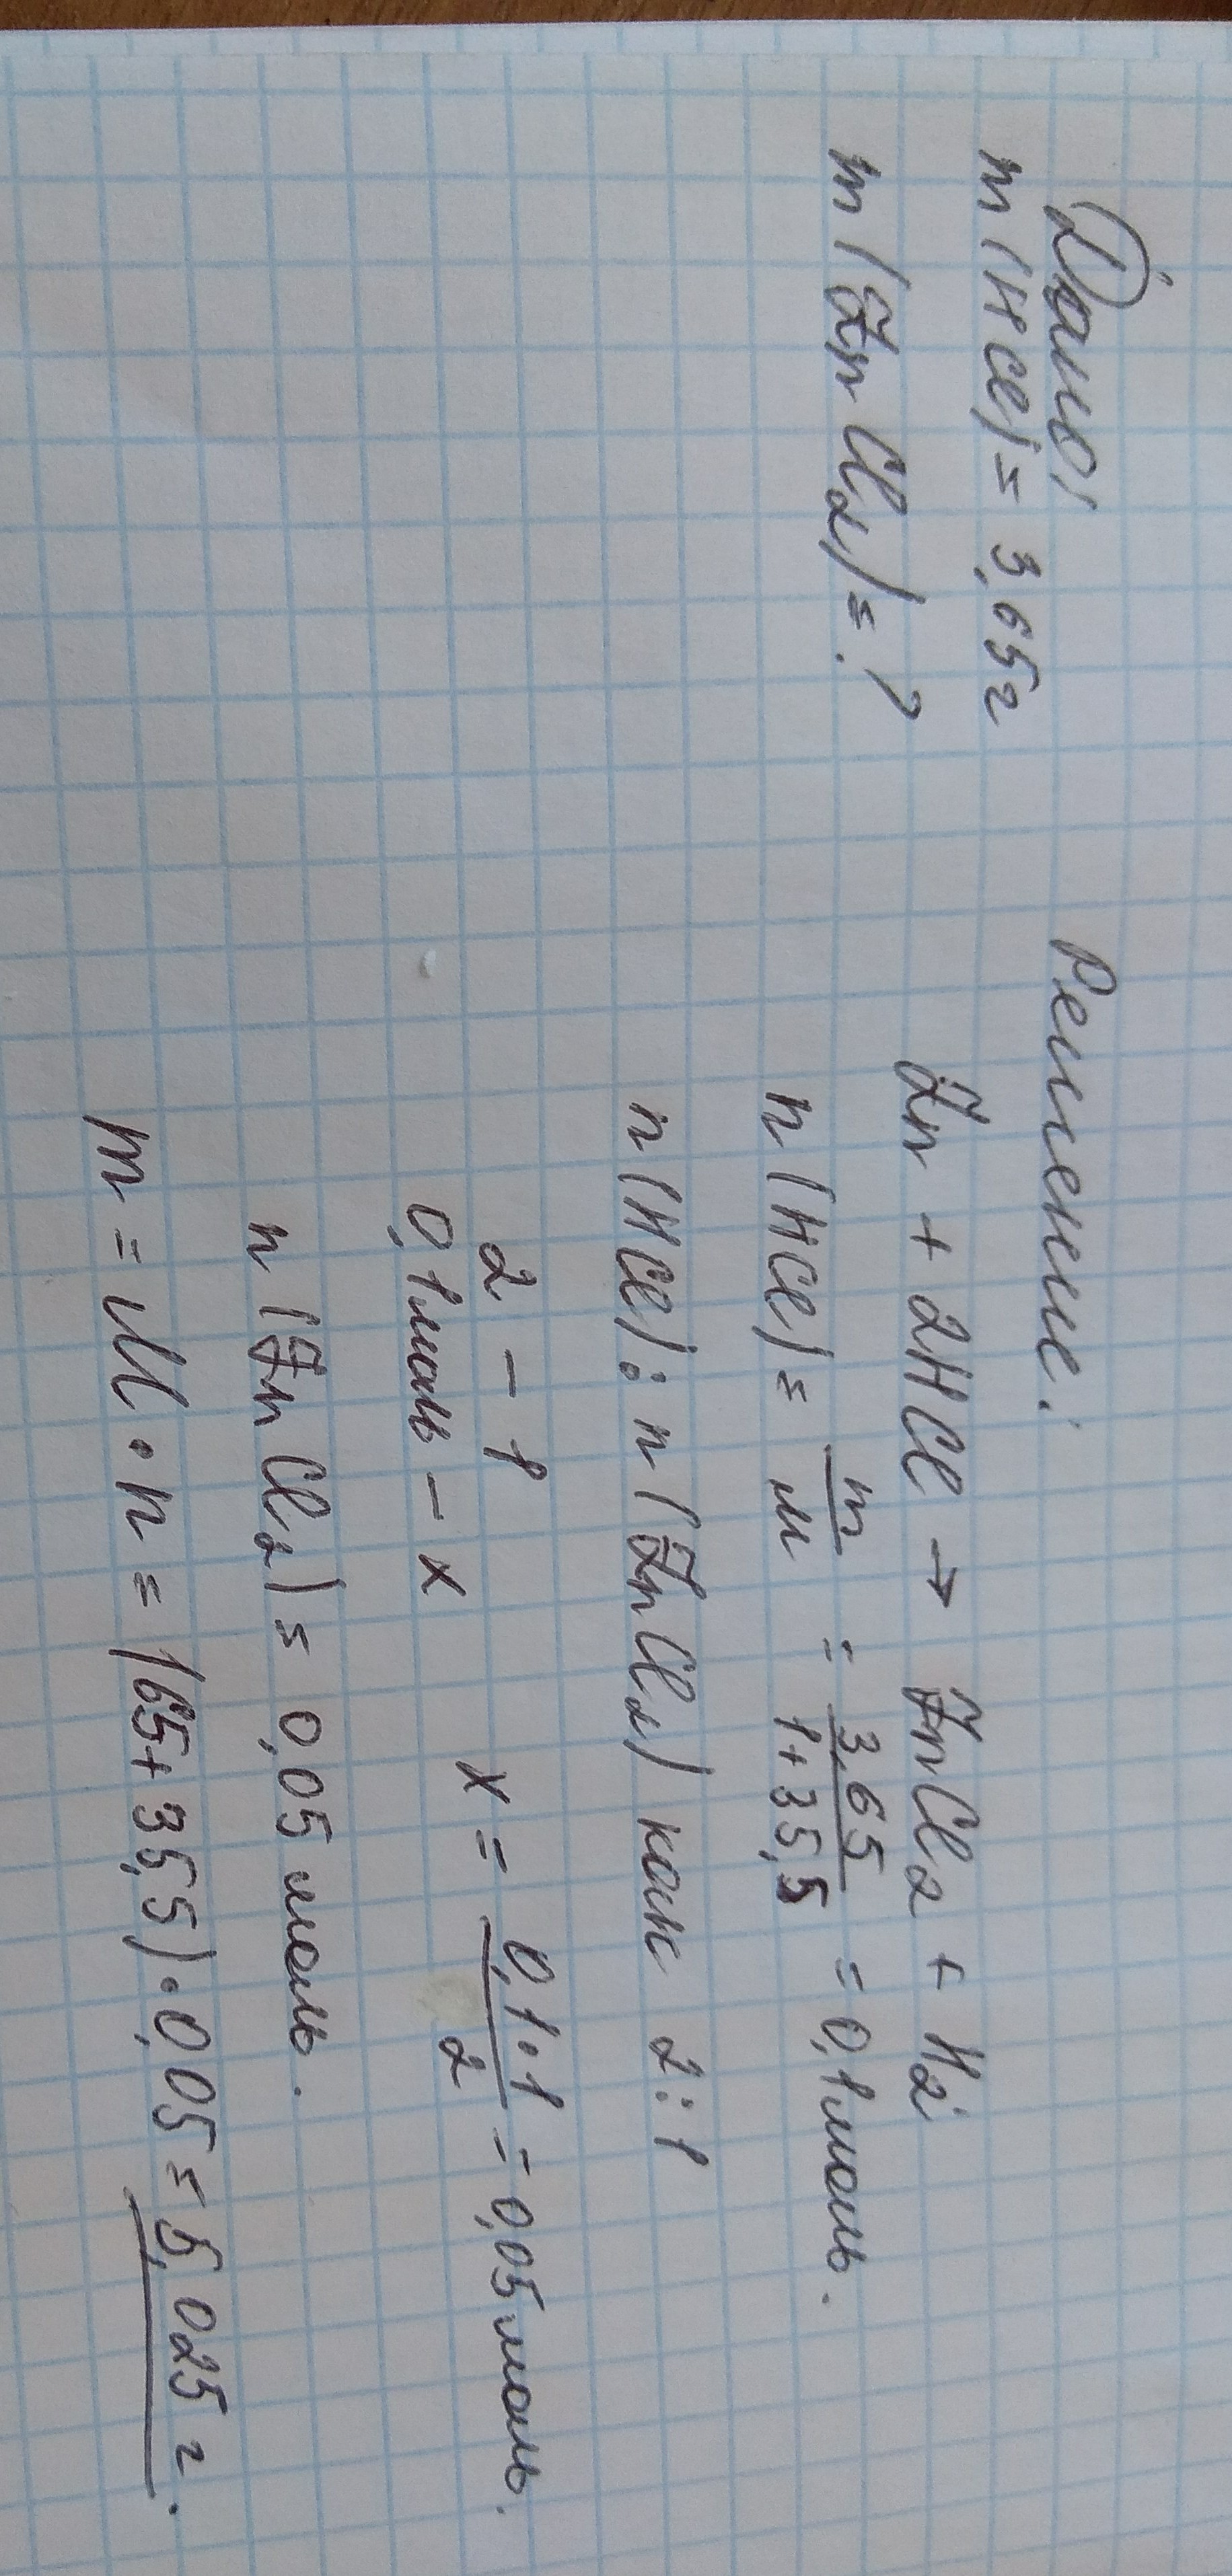 Дано:
m (HCl) = 3,65 г
m (ZnCl₂) = ?
Решение:
Zn + 2HCl → ZnCl₂ + H₂
n (HCl) = m/M = 3,65/1+35,5 = 0,1 моль.
n (HCl) : n (ZnCl₂) как 2:1
2 – 1
0,1 моль – x
x = 0,1·1/2 = 0,05 моль.
n (ZnCl₂) = 0,05 моль.
m = M · n = (65+35,5)·0,05 = 5,025 г.